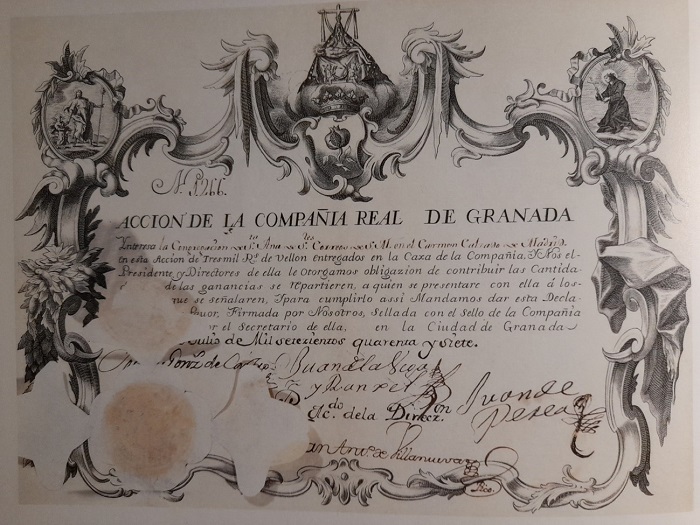 N. 1266.
ACCION DE LA COMPAÑIA REAL DE GRANADA
Interesa la Congregacion de Sta Ana de S. M. en el Carmen Calzado de Madrid
en esta Accion de Tresmil Rs. de Vellon entregados en la Caxa de la Compañia. I Nos el
Presidente y Directores de ella le otorgamos obligazion de contribuir las Cantida
de las ganancias se repartieren, a quien se presentare con ella á los
que se señalaren, I para cumplirlo assi Mandamos dar esta Decla
Firmada por Nosotros, Sellada con el Sello de la Compañia
el Secretario de ella, en la Ciudad de Granada
Julio de Mil setezientos quarenta y siete.
de Castro Juan de la
Juan de
Perea
Acdo. de la Direc.on
Anto. de Villanueva
Srio.